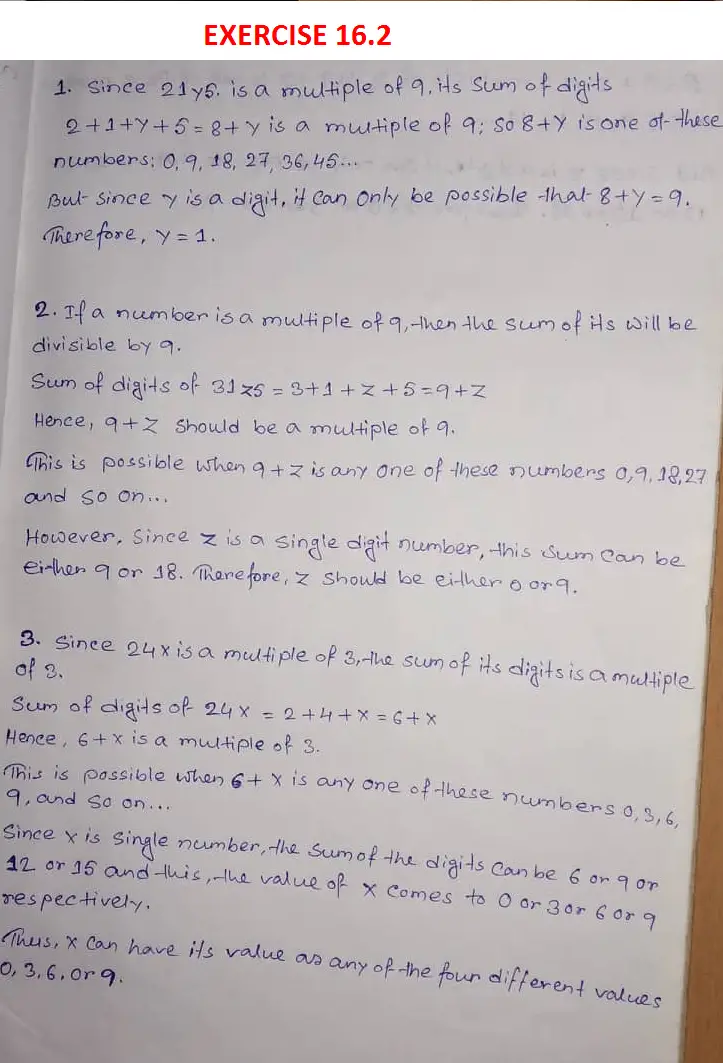 EXERCISE 16.2
1. Since 21y5. is a multiple of 9, its Sum of digits
2+1+Y+5=8+Y is a multiple of 9; So 8+Y is one of these
numbers: 0, 9, 18, 27, 36, 45...
But since y is a digit, it can only be possible that 8+y=9.
Therefore, Y=1.
2. If a number is a multiple of 9, then the sum of its will be
divisible by 9.
Sum of digits of 31z5 = 3+1+z+5=9+z
Hence, 9+z should be a multiple of 9.
This is possible when 9+z is any one of these numbers 0,9,18,27
and so on...
However, Since z is a single digit number, this sum can be
either 9 or 18. Therefore, z should be either 0 or 9.
3. Since 24x is a multiple of 3, the sum of its digits is a multiple
of 3.
Sum of digits of 24x = 2+4+x = 6+x
Hence, 6+x is a multiple of 3.
This is possible when 6+x is any one of these numbers 0,3,6,
9, and so on...
Since x is single number, the sum of the digits can be 6 or 9 or
12 or 15 and this, the value of x comes to 0 or 3 or 6 or 9
respectively.
Thus, x can have its value as any of the four different values
0, 3, 6, or 9.